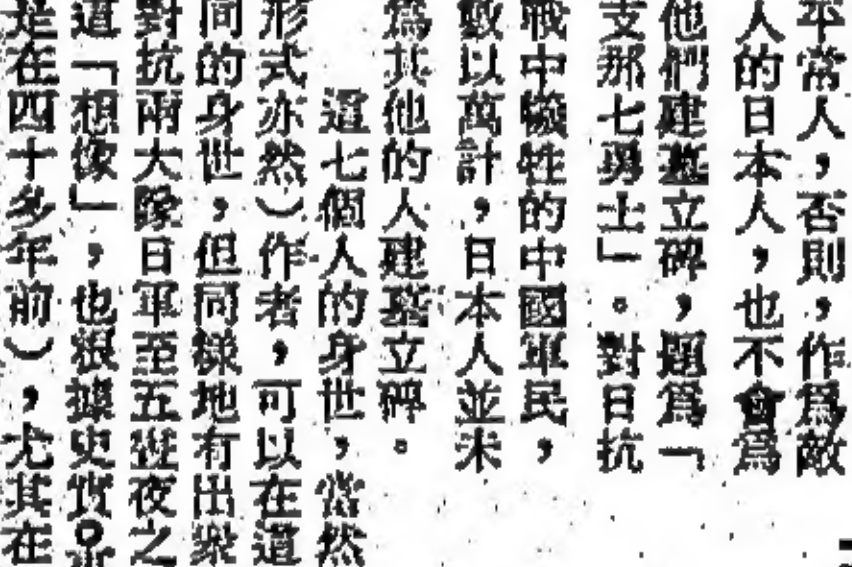 平常人，否則，作爲敵
人的日本人，也不會爲
他們建墓立碑，題爲「
支那七勇士」。對日抗
戰中犧牲的中國軍民，
數以萬計，日本人並未
爲其他的人建墓立碑。
這七個人的身世，當然
形式亦然）作者，可以在這
同的身世，但同樣地有出衆
對抗兩大隊日軍至五晝夜之
這「想像」，也很據史實
是在四十多年前），尤其在